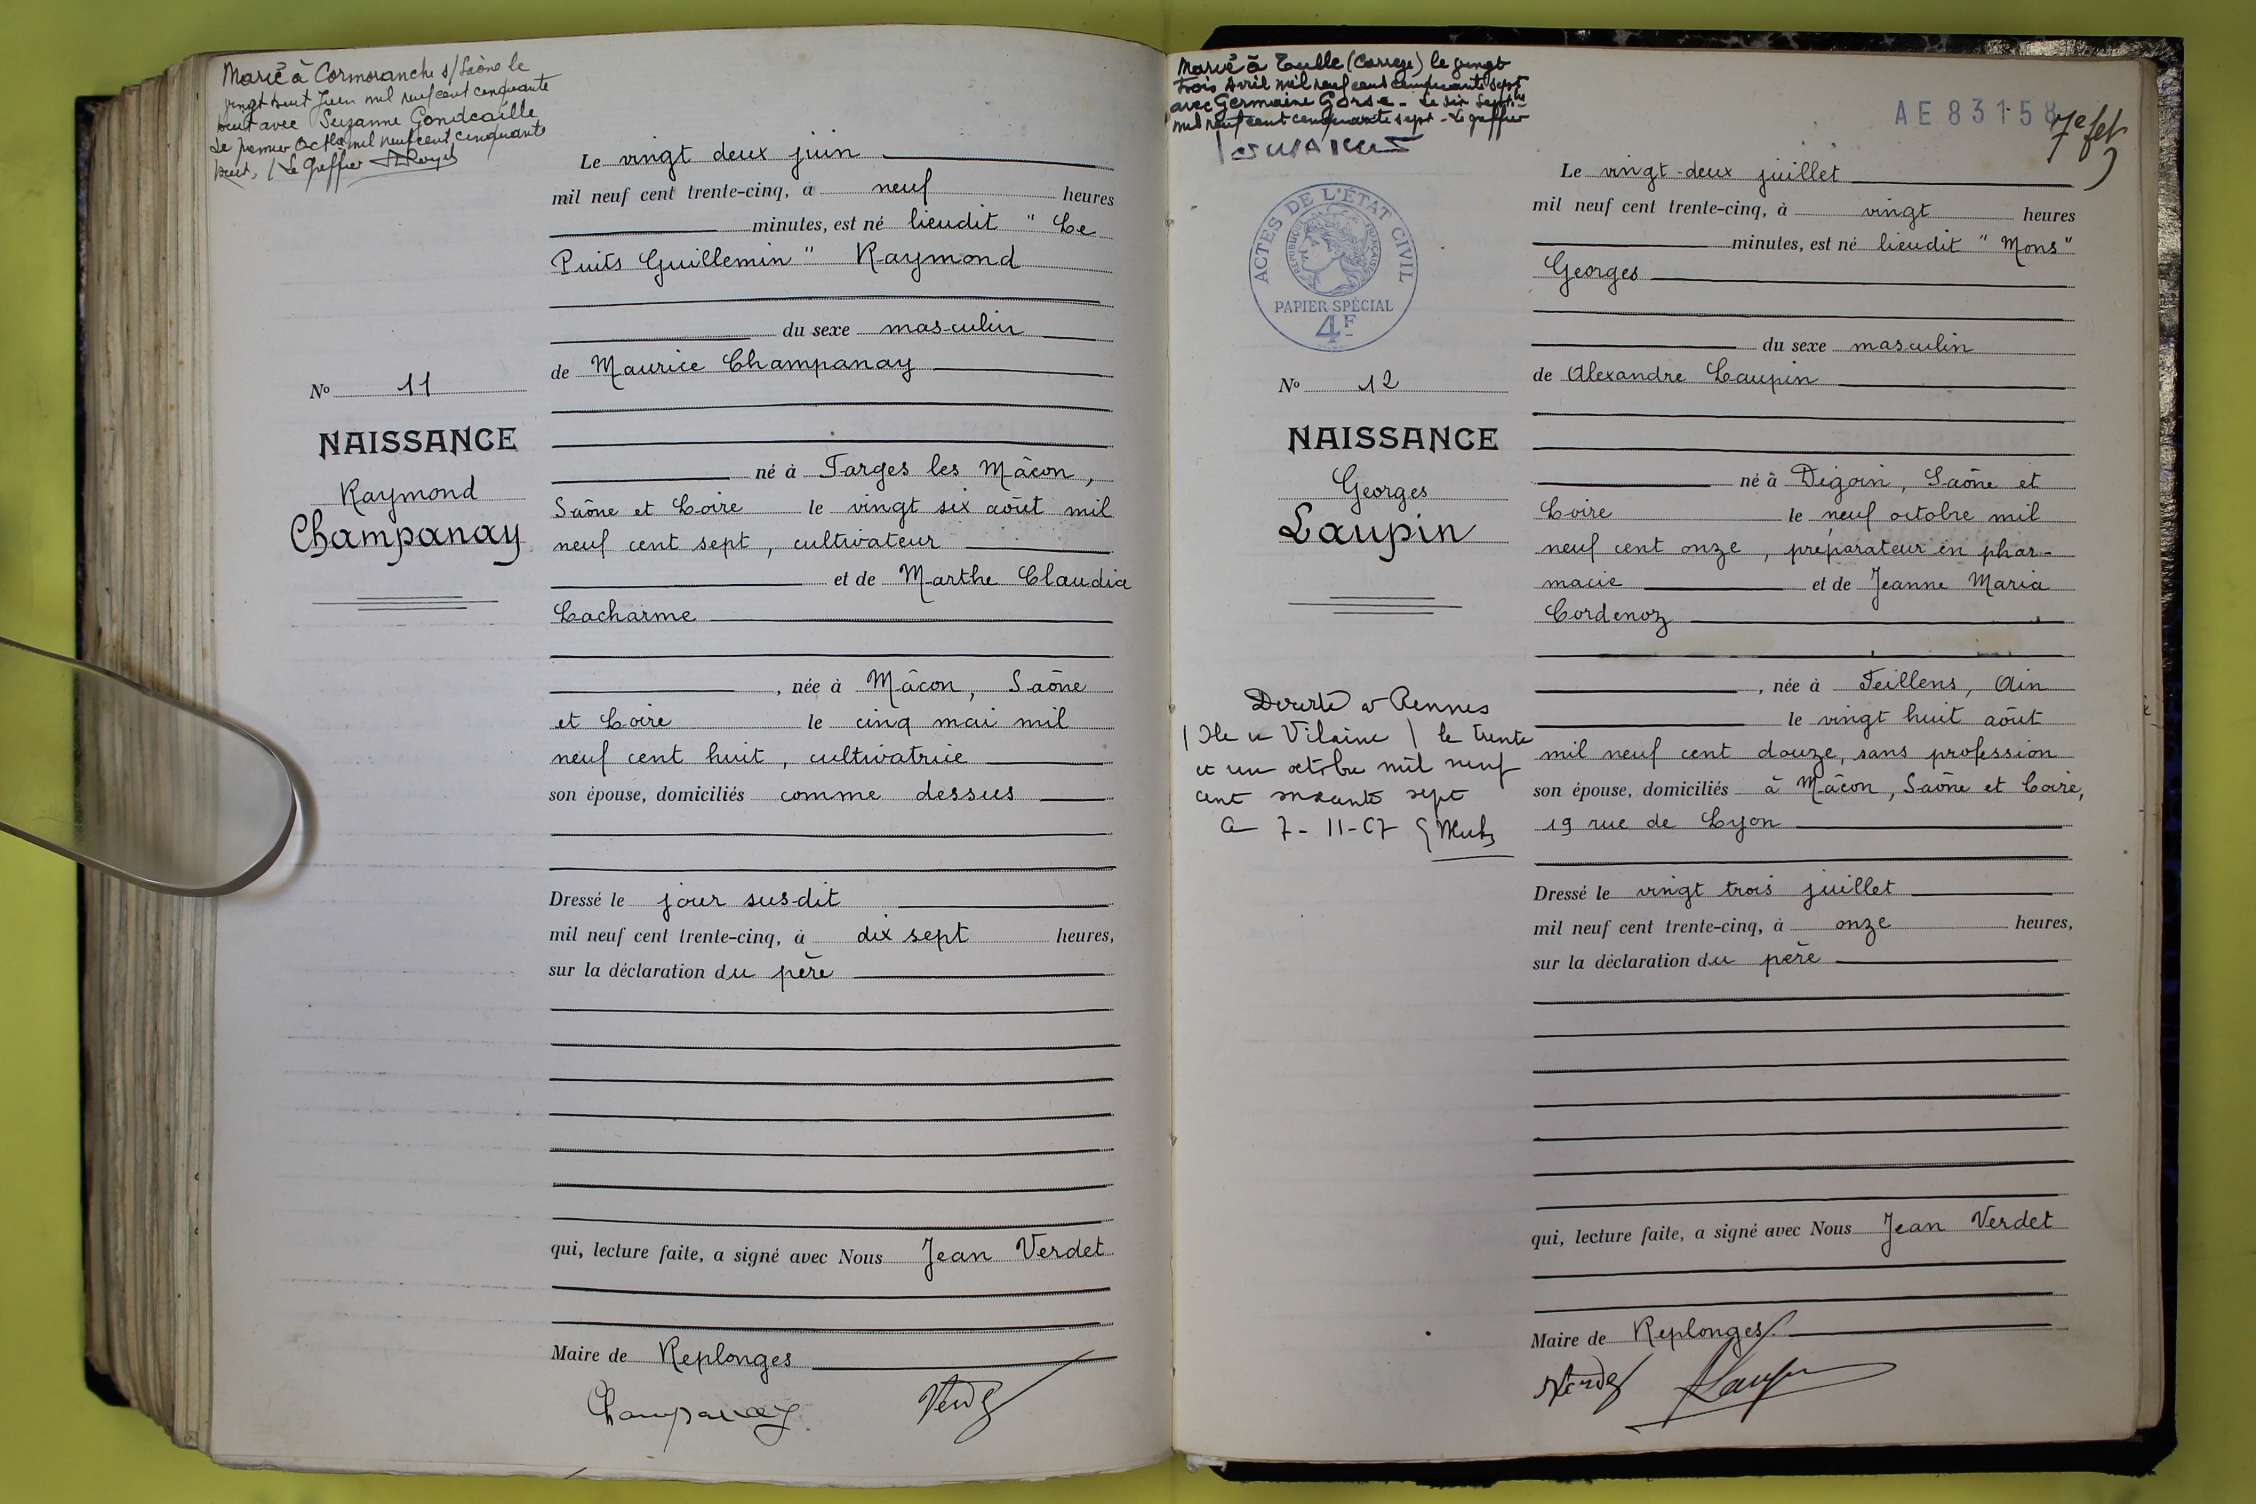 Marié à Cormoranche s/Saône le
vingt huit Juin mil neuf cent cinquante
huit avec Suzanne Gondcaille
Le premier Octbre mil neuf cent cinquante
huit, / Le Greffier
Le vingt deux juin
mil neuf cent trente-cinq, à neuf heures
minutes, est né lieudit " Le
Puits Guillemin " Raymond
du sexe masculin
de Maurice Champanay
No 11
NAISSANCE
Raymond
Champanay
né à Farges les Mâcon,
Saône et Loire le vingt six août mil
neuf cent sept, cultivateur
et de Marthe Claudia
Lacharme
, née à Mâcon, Saône
et Loire le cinq mai mil
neuf cent huit, cultivatrice
son épouse, domiciliés comme dessus
Dressé le jour sus-dit
mil neuf cent trente-cinq, à dix sept heures,
sur la déclaration du père
qui, lecture faite, a signé avec Nous Jean Verdet
Maire de Replonges
Champanay
Marié à Tulle (Corrèze) le vingt
trois Avril mil neuf cent cinquante sept
avec Germaine Gorse - Le six Septbre
mil neuf cent cinquante sept - Le greffier
AE 83158
7e fet
ACTES DE L'ÉTAT CIVIL
RÉPUBLIQUE FRANÇAISE
PAPIER SPÉCIAL
4F
Le vingt-deux juillet
mil neuf cent trente-cinq, à vingt heures
minutes, est né lieudit " Mons "
Georges
du sexe masculin
de Alexandre Laupin
No 12
NAISSANCE
Georges
Laupin
né à Digoin, Saône et
Loire le neuf octobre mil
neuf cent onze, préparateur en phar-
macie et de Jeanne Maria
Cordenoz
, née à Feillens, Ain
le vingt huit août
mil neuf cent douze, sans profession
son épouse, domiciliés à Mâcon, Saône et Loire,
19 rue de Lyon
à Rennes
Vilaine / le trente
et un octobre mil neuf
cent soixante sept
7-11-67
Dressé le vingt trois juillet
mil neuf cent trente-cinq, à onze heures,
sur la déclaration du père
qui, lecture faite, a signé avec Nous Jean Verdet
Maire de Replonges
Laupin